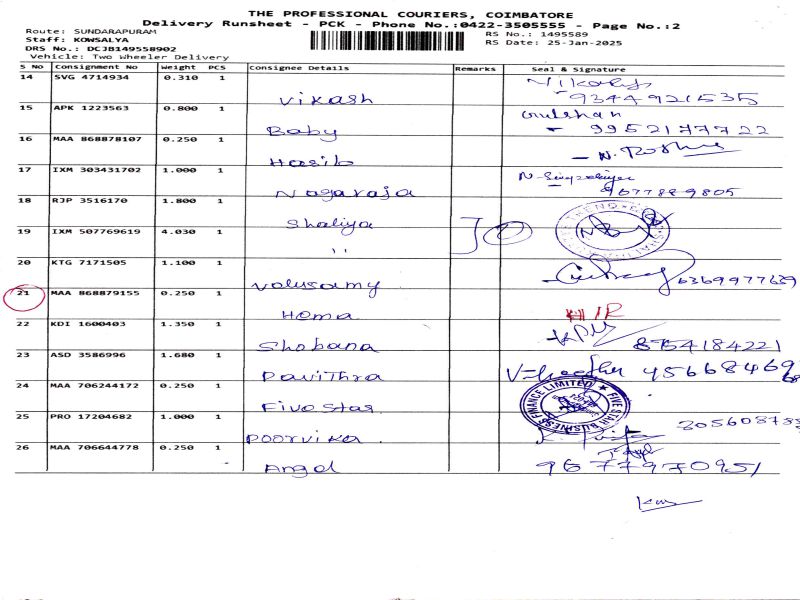 THE PROFESSIONAL COURIERS, COIMBATORE
Delivery Runsheet - PCK - Phone No.:0422-3505555 - Page No.:2
Route: SUNDARAPURAM
Staff: KOWSALYA
DRS No.: DCJB149558902
Vehicle: Two Wheeler Delivery
RS No.: 1495589
RS Date: 25-Jan-2025
S No Consignment No Weight PCS Consignee Details Remarks Seal & Signature
14 SVG 4714934 0.310 1 Vikash 9344921535
15 APK 1223563 0.800 1 Baby Gulshan - 9952177722
16 MAA 868878107 0.250 1 Hasib - N.
17 IXM 303431702 1.000 1 Nagaraja 9677889805
18 RJP 3516170 1.800 1 Shaliya
19 IXM 507769619 4.030 1 "
20 KTG 7171505 1.100 1 Valusamy 6369977639
21 MAA 868879155 0.250 1 Hema
22 KDI 1600403 1.350 1 Shobana 8754184221
23 ASD 3586996 1.680 1 Pavithra
24 MAA 706244172 0.250 1 Five Star FIVE STAR BUSINESS FINANCE LIMITED
25 PRO 17204682 1.000 1 Poorvika.
26 MAA 706644778 0.250 1 Angel 9677970951